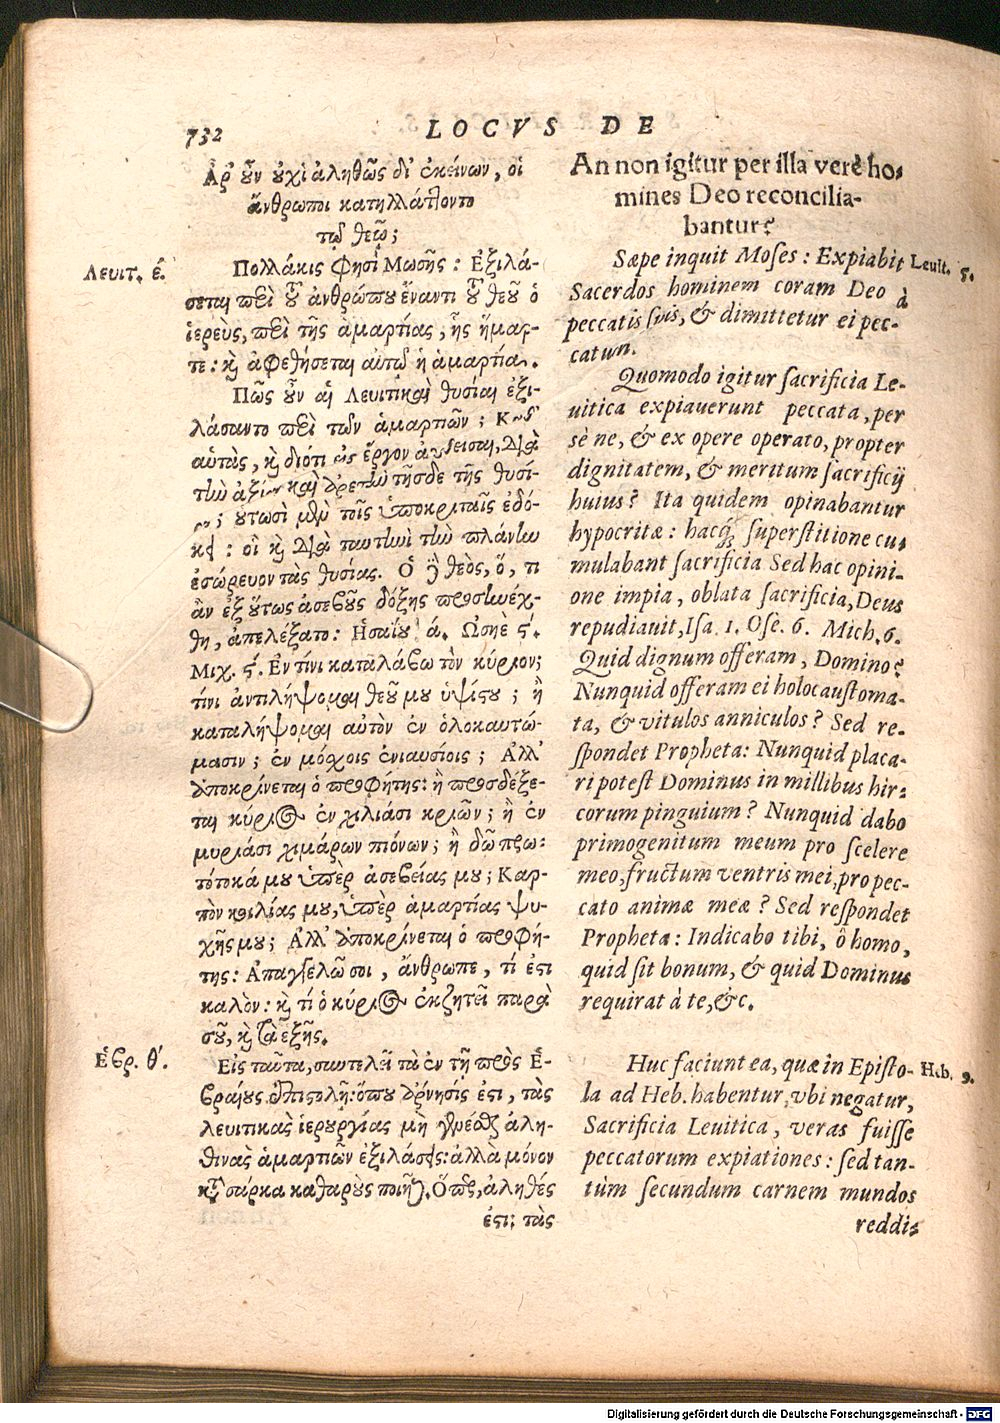 732 LOCVS DE
Ἆρ' οὖν οὐχὶ ἀληθῶς δι' ἐκείνων, οἱ
ἄνθρωποι κατηλλάττοντο
τῷ θεῷ;
Λευιτ. έ.
Πολλάκις φησὶ Μωσῆς: Ἐξιλά-
σεται περὶ τοῦ ἀνθρώπου ἔναντι τοῦ θεοῦ ὁ
ἱερεὺς, περὶ τῆς ἁμαρτίας, ἧς ἥμαρ-
τε: καὶ ἀφεθήσεται αὐτῷ ἡ ἁμαρτία.
Πῶς οὖν αἱ Λευιτικαὶ θυσίαι ἐξι-
λάσαντο περὶ τῶν ἁμαρτιῶν;
αὑτὰς, καὶ διότι ἔργον διὰ
τὴν καὶ ἀρετὴν τῆσδε τῆς θυσί-
; οὑτωσὶ μὲν τοῖς ὑποκριταῖς ἐδό-
κει: οἳ καὶ διὰ ταυτηνὶ τὴν πλάνην
ἐσώρευον τὰς θυσίας. Ὁ δὲ θεὸς, ὅ, τι
ἂν ἐξ οὕτως ἀσεβοῦς δόξης προσηνέχ-
θη, ἀπελέξατο: Ἡσαΐου ά. Ὠσηὲ ς'.
Μιχ. ς'. Ἐν τίνι καταλάβω τὸν κύριον;
τίνι ἀντιλήψομαι θεοῦ μου ὑψίστου; ἢ
καταλήψομαι αὐτὸν ἐν ὁλοκαυτώ-
μασιν; ἐν μόσχοις ἐνιαυσίοις; Ἀλλ'
ἀποκρίνεται ὁ προφήτης: ἢ προσδέξε-
ται κύριος ἐν χιλιάσι κριῶν; ἢ ἐν
μυριάσι χιμάρων πιόνων; ἢ δῶ πρω-
τότοκά μου ὑπὲρ ἀσεβείας μου; Καρ-
πὸν κοιλίας μου, ὑπὲρ ἁμαρτίας ψυ-
χῆς μου; Ἀλλ' ἀποκρίνεται ὁ προφή-
της: Ἀπαγγελῶ σοι, ἄνθρωπε, τί ἐστι
καλὸν: καὶ τί ὁ κύριος ἐκζητεῖ παρὰ
σοῦ, καὶ τὰ ἑξῆς.
Ἑβρ. θ'.
Εἰς ταῦτα, συντελεῖ τὰ ἐν τῇ πρὸς Ἑ-
βραίους ἐπιστολῇ: ὅπου ἄρνησίς ἐστι, τὰς
λευιτικὰς ἱερουργίας μὴ γενέσθαι ἀλη-
θινὰς ἁμαρτιῶν ἐξιλάσεις: ἀλλὰ μόνον
κατὰ σάρκα καθαροὺς ποιῆσαι. Ὅπερ, ἀληθές
ἐστι; τὰς
An non igitur per illa verè ho-
mines Deo reconcilia-
bantur?
Sæpe inquit Moses: Expiabit
Levit. 5.
Sacerdos hominem coram Deo à
peccatis suis, & dimittetur ei pec-
catum.
Quomodo igitur sacrificia Le-
uitica expiauerunt peccata, per
sè ne, & ex opere operato, propter
dignitatem, & meritum sacrificij
huius? Ita quidem opinabantur
hypocritæ: hacq; superstitione cu-
mulabant sacrificia Sed hac opini-
one impia, oblata sacrificia, Deus
repudiauit, Isa. 1. Ose. 6. Mich. 6.
Quid dignum offeram, Domino?
Nunquid offeram ei holocaustoma-
ta, & vitulos anniculos? Sed re-
spondet Propheta: Nunquid placa-
ri potest Dominus in millibus hir-
corum pinguium? Nunquid dabo
primogenitum meum pro scelere
meo, fructum ventris mei, pro pec-
cato animæ meæ? Sed respondet
Propheta: Indicabo tibi, ô homo,
quid sit bonum, & quid Dominus
requirat à te, &c.
Huc faciunt ea, quæ in Episto-
Heb. 9.
la ad Heb. habentur, vbi negatur,
Sacrificia Leuitica, veras fuisse
peccatorum expiationes: sed tan-
tùm secundum carnem mundos
reddi-
Digitalisierung gefördert durch die Deutsche Forschungsgemeinschaft - DFG